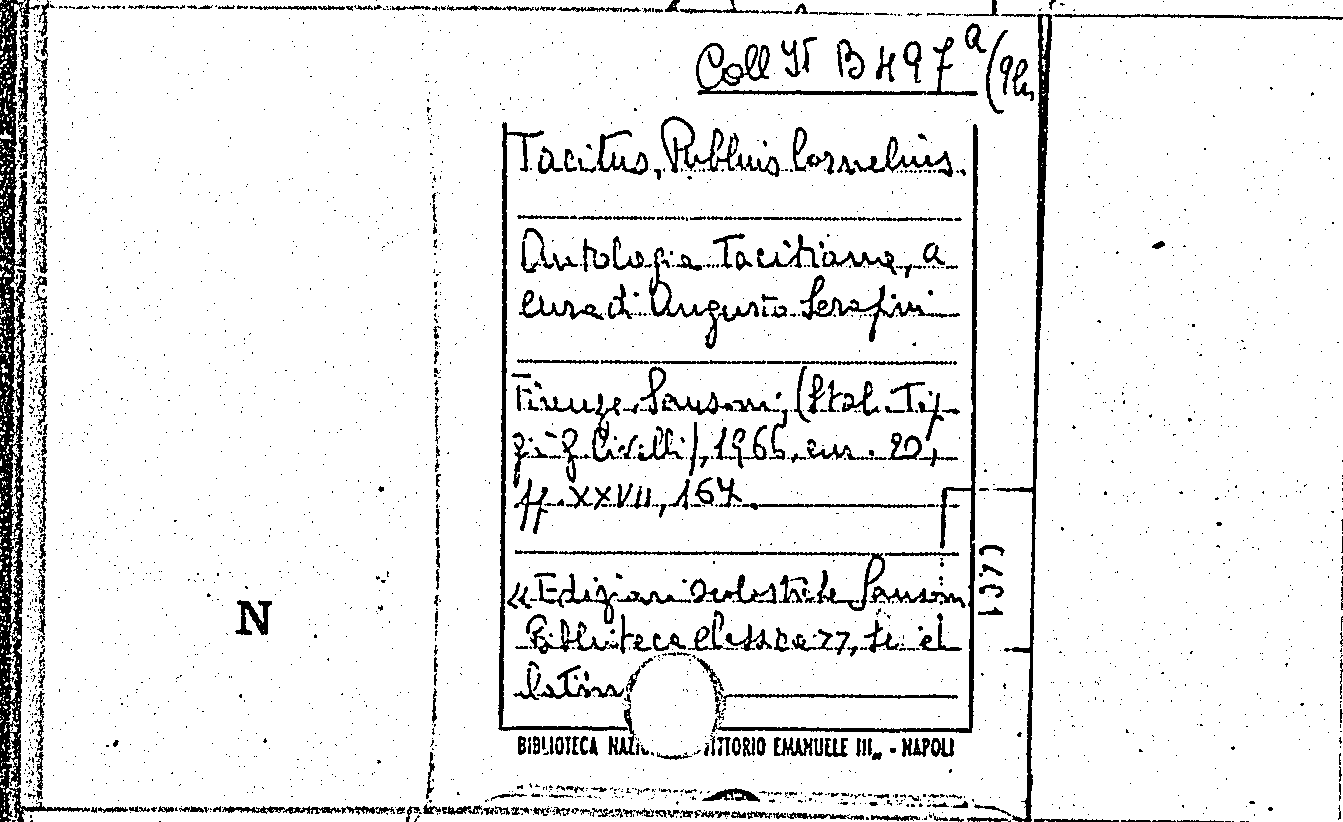 Coll It B 497 a (9
Tacitus, Publius Cornelius.
Antologia Tacitiana, a
cura di Augusto Serafini
Firenze, Sansoni, (Stab. Tip.
G. Civelli), 1966, cm. 20,
pp. XXVII, 167.
« Edizioni scolastiche Sansoni
Biblioteca classica »,
latin
N
BIBLIOTECA EMANUELE III„ - NAPOLI